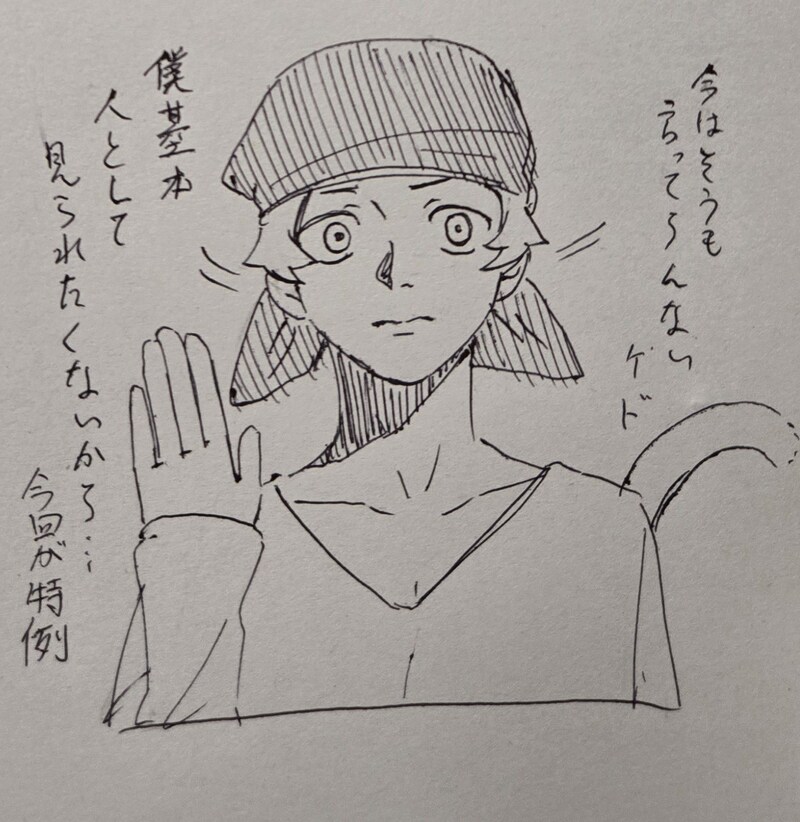 今はそうも
言ってらんない
ケド
僕基本
人として
見られたくないから…
今回が特例